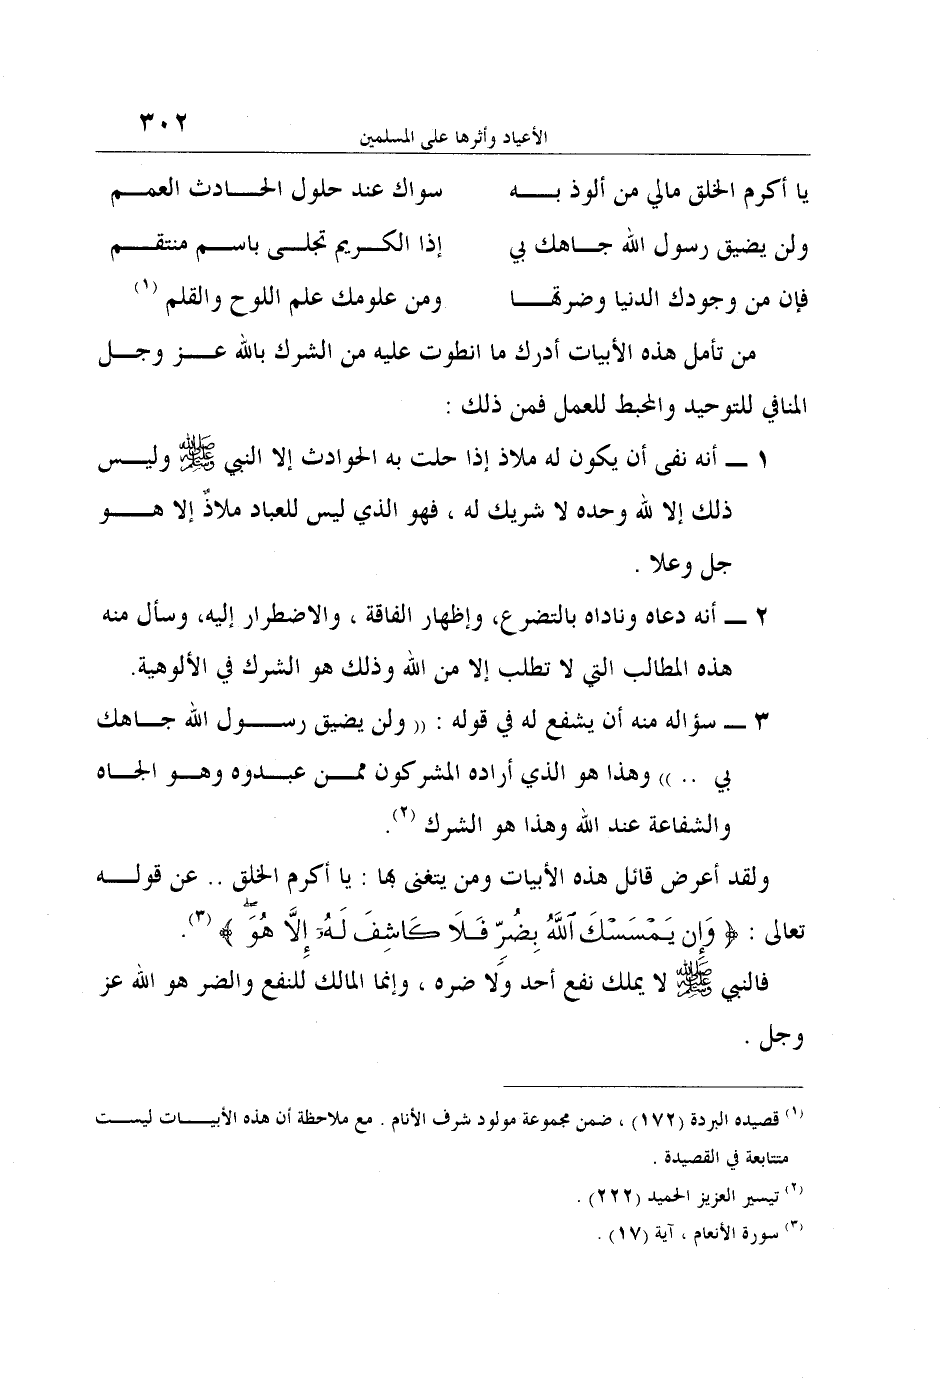 الأعياد وأثرها على المسلمين ٣٠٢
يا أكرم الخلق مالي من ألوذ بـــه سواك عند حلول الحـــادث العمـــم
ولن يضيق رسول الله جـــاهك بي إذا الكـــريم تجلـــى باســـم منتقـــم
فإن من وجودك الدنيا وضرتهـــا ومن علومك علم اللوح والقلم (١)
من تأمل هذه الأبيات أدرك ما انطوت عليه من الشرك بالله عـــز وجـــل
المنافي للتوحيد والمحبط للعمل فمن ذلك :
١ ــ أنه نفى أن يكون له ملاذ إذا حلت به الحوادث إلا النبي ﷺ وليـــس
ذلك إلا لله وحده لا شريك له ، فهو الذي ليس للعباد ملاذٌ إلا هـــو
جل وعلا .
٢ ــ أنه دعاه وناداه بالتضرع، وإظهار الفاقة ، والاضطرار إليه، وسأل منه
هذه المطالب التي لا تطلب إلا من الله وذلك هو الشرك في الألوهية.
٣ ــ سؤاله منه أن يشفع له في قوله : (( ولن يضيق رســـول الله جـــاهك
بي .. )) وهذا هو الذي أراده المشركون ممـــن عبـــدوه وهـــو الجـــاه
والشفاعة عند الله وهذا هو الشرك (٢).
ولقد أعرض قائل هذه الأبيات ومن يتغنى بها : يا أكرم الخلق .. عن قولـــه
تعالى : ﴿ وَإِن يَمْسَسْكَ ٱللَّهُ بِضُرٍّ فَلَا كَاشِفَ لَهُۥٓ إِلَّا هُوَ ۖ ﴾ (٣).
فالنبي ﷺ لا يملك نفع أحد ولا ضره ، وإنما المالك للنفع والضر هو الله عز
وجل .
(١) قصيده البردة (١٧٢) ، ضمن مجموعة مولود شرف الأنام . مع ملاحظة أن هذه الأبيـــات ليســـت
متتابعة في القصيدة .
(٢) تيسير العزيز الحميد (٢٢٢) .
(٣) سورة الأنعام ، آية (١٧) .